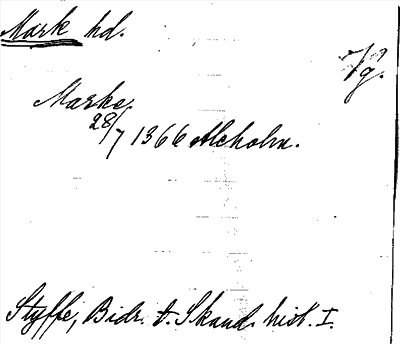 Mark hd.
Vg.
Marke
28/7 1366 Alcholm.
Styffe, Bidr. t. Skand. hist. I.